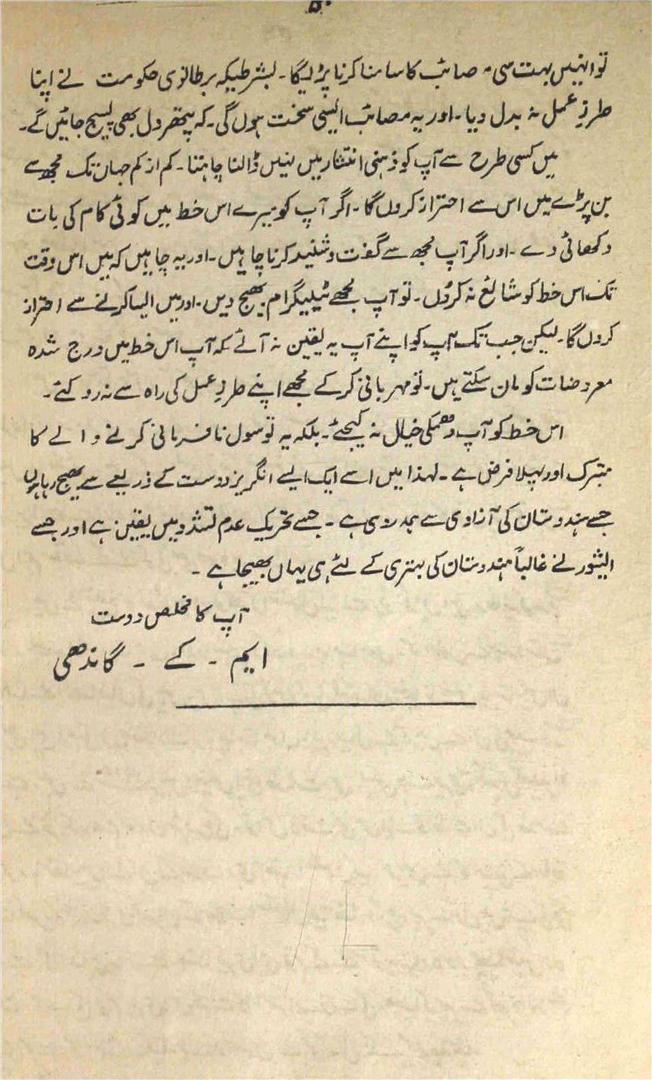 ۵۰
تو انہیں بہت سی مصائب کا سامنا کرنا پڑیگا۔ بشرطیکہ برطانوی حکومت نے اپنا
طرزِ عمل نہ بدل دیا۔ اور یہ مصائب ایسی سخت ہوں گی۔ کہ پتھر دل بھی پسیج جائیں گے۔
میں کسی طرح سے آپ کو ذہنی انتشار میں نہیں ڈالنا چاہتا۔ کم از کم جہاں تک مجھ سے
بن پڑے میں اس سے احتراز کروں گا۔ اگر آپ کو میرے اس خط میں کوئی کام کی بات
دکھائی دے۔ اور اگر آپ مجھ سے گفت و شنید کرنا چاہیں۔ اور یہ چاہیں کہ میں اس وقت
تک اس خط کو شائع نہ کروں۔ تو آپ مجھے ٹیلیگرام بھیج دیں۔ اور میں ایسا کرنے سے احتراز
کروں گا۔ لیکن جب تک آپ کو اپنے آپ یہ یقین نہ آئے کہ آپ اس خط میں درج شدہ
معروضات کو مان سکتے ہیں۔ تو مہربانی کر کے مجھے اپنے طرزِ عمل کی راہ سے نہ روکئے۔
اس خط کو آپ دھمکی خیال نہ کیجئے۔ بلکہ یہ تو سول نافرمانی کرنے والے کا
متبرک اور پہلا فرض ہے۔ لہذا میں اسے ایک ایسے انگریز دوست کے ذریعے سے بھیج رہا ہوں
جسے ہندوستان کی آزادی سے ہمدردی ہے۔ جسے تحریک عدم تشدد میں یقین ہے اور جسے
ایشور نے غالباً ہندوستان کی بہتری کے لئے ہی یہاں بھیجا ہے۔
آپ کا مخلص دوست
ایم۔ کے۔ گاندھی